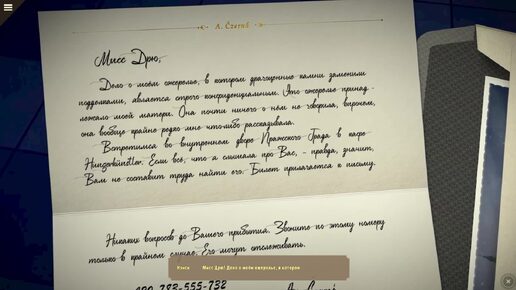 А. Černá
Мисс Дрю,
Дело о моём ожерелье, в котором драгоценные камни заменили
подделками, является строго конфиденциальным. Это ожерелье принад-
лежало моей матери. Она почти ничего о нём не говорила, впрочем,
она вообще крайне редко мне что-либо рассказывала.
Встретимся во внутреннем дворе Пражского Града в кафе
Hungerkünstler. Если всё, что я слышала про Вас, - правда, значит,
Вам не составит труда найти его. Билет прилагается к письму.
Никаких вопросов до Вашего прибытия. Звоните по этому номеру
только в крайнем случае. Его могут отслеживать.
Нэнси: Мисс Дрю! Дело о моём ожерелье, в котором
420 783-555-732